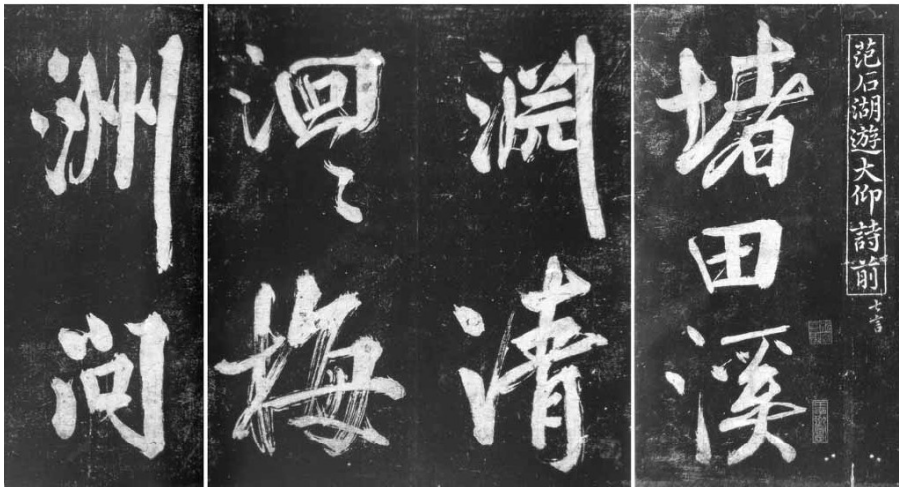 范石湖游大仰詩前
七言
堵田溪
淵清
洄〻梅
洲尚